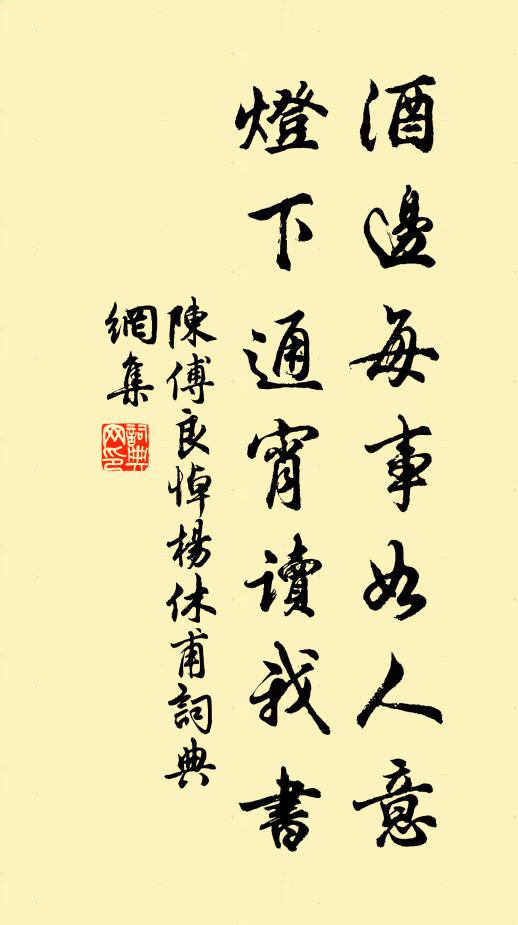 酒邊每事如人意
燈下通宵讀我書
陳傅良悼楊休甫詞典
網集
詞典
網印